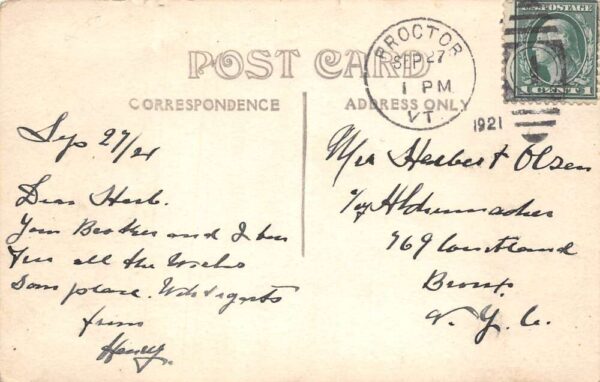 POST CARD
CORRESPONDENCE
ADDRESS ONLY
PROCTOR
SEP 27
1 PM
VT.
1921
U.S. POSTAGE
1 CENT 1
Sep 27/21
Dear Herb.
Your Brother and I
all the
place. regards
from
Henry
Herbert Olsen
H Schumacher
769 Courtland
Bronx
N. Y. C.